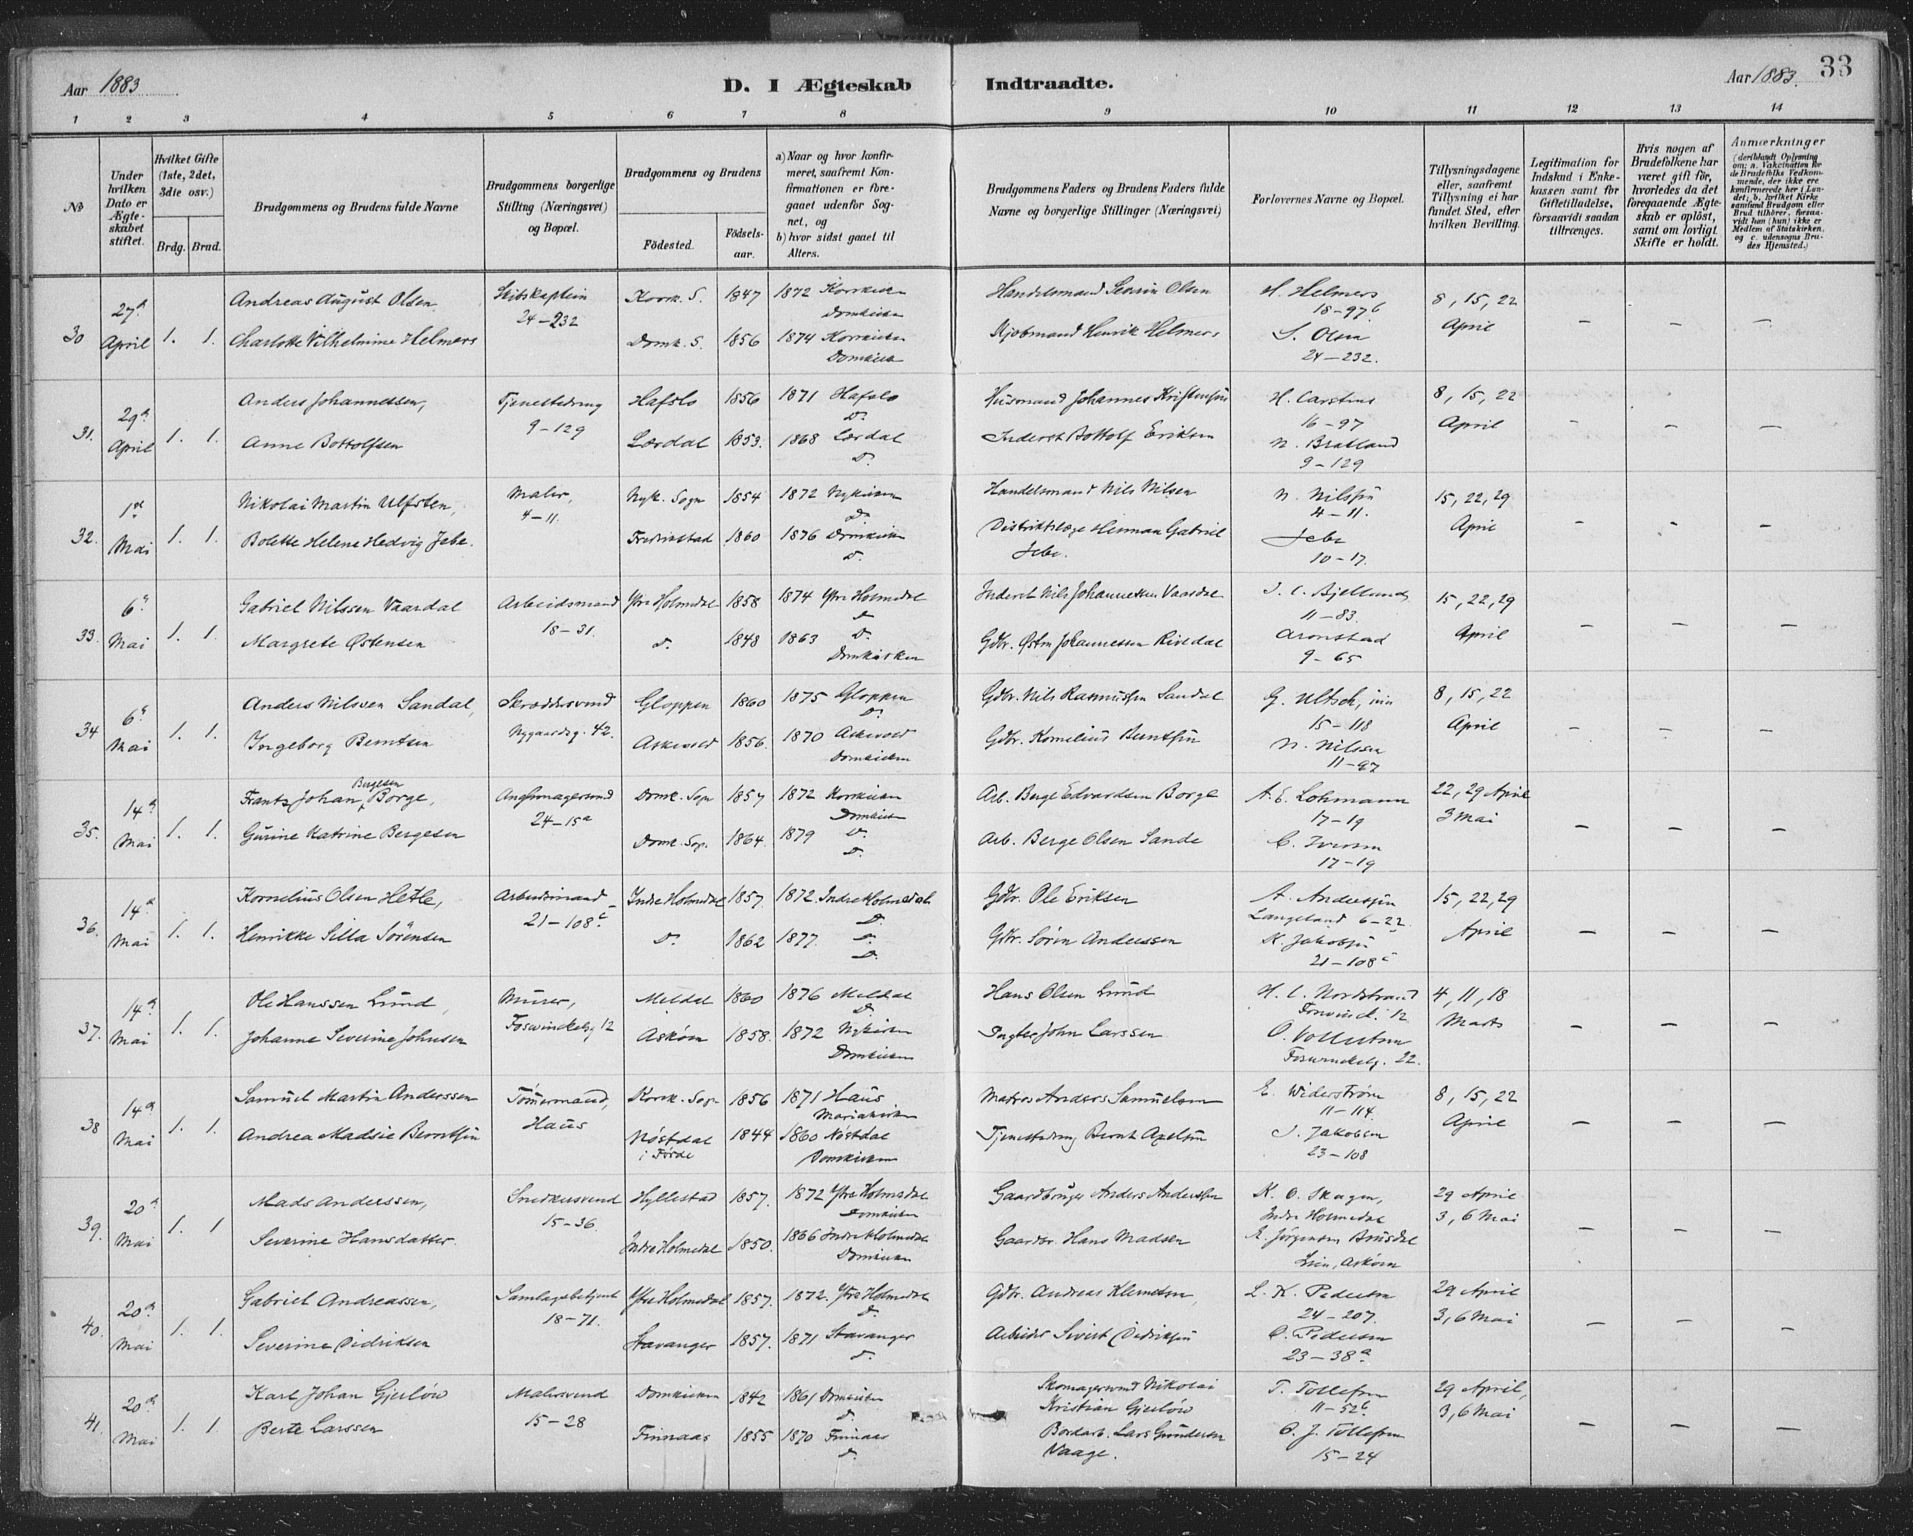 Aar 1883
D. I Ægteskab Indtraadte.
Aar 1883. 33
1 2 3 4 5 6 7 8 9 10 11 12 13 14
No
Under hvilken Dato er Ægteskabet stiftet.
Hvilket Gifte (1ste, 2det, 3die osv.)
Brdg. Brud.
Brudgommens og Brudens fulde Navne
Brudgommens borgerlige Stilling (Næringsvei) og Bopæl.
Brudgommens og Brudens
Födested. Födselsaar.
a) Naar og hvor konfirmeret, saafremt Konfirmationen er foregaaet udenfor Sognet, og
b) hvor sidst gaaet til Alters.
Brudgommens Faders og Brudens Faders fulde Navne og borgerlige Stillinger (Næringsvei)
Forlovernes Navne og Bopæl.
Tillysningsdagene eller, saafremt Tillysning ei har fundet Sted, efter hvilken Bevilling.
Legitimation for Indskud i Enkekassen samt for Giftetilladelse, forsaavidt saadan tiltrænges.
Hvis nogen af Brudefolkene har været gift før, hvorledes da det foregaaende Ægteskab er oplöst, samt om lovligt Skifte er holdt.
Anmærkninger
(deriblandt Oplysning om: a. Vakcination for de Brudefolks Vedkommende, der ikke ere konfirmerede her i Landet; b. hvilket Kirkesamfund Brudgom eller Brud tilhører, forsaavidt han (hun) ikke er Medlem af Statskirken, og c. udensogns Brudes Hjemsted.)
30 27de April 1. 1.
Andreas August Olsen Skibskaptein 24-232 Kork. S. 1847 1872 Korskirken Domkirken Handelsmand Severin Olsen H. Helmers 18-97b 8, 15, 22 April
Charlotte Vilhelmine Helmers Domk. S. 1856 1874 Korskirken Domkirken Kjøbmand Henrik Helmers S. Olsen 24-232.
31. 29de April 1. 1.
Anders Johannessen, Tjenestedreng 9-129 Hafslo 1856 1871 Hafslo Do. Husmand Johannes Kristensen H. Carstens 16-97 8, 15, 22 April
Anne Bottolfsen Lærdal 1853. 1868 Lærdal Do. Inderst Bottolf Eriksen N. Bratland 9-129
32. 1ste Mai 1. 1.
Nikolai Martin Ulfsten, Maler, 4-11. Nyk. Sogn 1854 1872 Nykirken Do. Handelsmand Nils Nilsen N. Nilsen 4-11. 15, 22, 29 April
Bolette Helene Hedvig Jebe. Fredrikstad 1860 1876 Domkirken Do. Distriktslæge Herman Gabriel Jebe. Jebe 10-17.
33. 6te Mai 1. 1.
Gabriel Nilssen Vaardal Arbeidsmand 18-31. Ytre Holmedal 1858 1874 Ytre Holmedal Do. Inderst Nils Johannessen Vaardal J. C. Bjelland 11-83. 15, 22, 29 April
Margrete Østensen Do. 1848 1863 Do. Domkirken Gdbr. Østen Johannessen Rivedal Aronstad 9-65
34 6te Mai 1. 1.
Anders Nilssen Sandal, Skræddersvend Nygaardsg. 42. Gloppen 1860 1875 Gloppen Do. Gdbr. Nils Rasmussen Sandal G. Ultsch, 15-118 8, 15, 22 April
Ingeborg Berntsen Askevold 1856. 1870 Askevold Domkirken Gdbr. Kornelius Berntsen N. Nilsen 11-97
35. 14de Mai 1. 1.
Frantz Johan Bergesen Borge, 24-15a Domk. Sogn 1857 1872 Korskirken Domkirken Arb. Berge Edvardsen Borge A. E. Lohmann 17-19 22, 29 April 3 Mai
Gurine Katrine Bergesen Domk. Sogn. 1864. 1879 Do. Do. Arb. Berge Olsen Sande C. Iversen 17-19
36. 14de Mai 1. 1.
Kornelius Olsen Hetle, Arbeidsmand 21-108c Indre Holmedal 1857. 1872 Indre Holmedal Do. Gdbr. Ole Eriksen A. Andersen Langeland 6-22 15, 22, 29 April
Henrikke Silla Sørensen Do. 1862 1877. Do. Do. Gdbr. Søren Anderssen K. Jakobsen 21-108c
37. 14de Mai 1. 1.
Ole Hanssen Lund, Murer, Foswinckelsg 12 Meldal 1860 1876 Meldal Do. Hans Olsen Lund H. C. Nordstrand Foswinck. 12 4, 11, 18 Marts
Johanne Severine Johnsen Askøen 1858. 1872 Nykirken Domkirken John Larssen O. Vollertsen Foswinckelg. 22.
38 14de Mai 1. 1.
Samuel Martin Anderssen Tømermand, Haus Korsk. Sogn 1856 1871 Haus Mariakirken Matros Anders Samuelsen E. Widerstrøm 11-114. 8, 15, 22 April
Andrea Madsie Berntsen Nøstdal i Førde 1844 1860 Nøstdal Domkirken Tjenestedreng Bernt Axelsen J. Jakobsen 23-108
39. 20de Mai 1. 1
Mads Anderssen, Snedkersvend 15-36. Hyllestad 1857. 1872 Ytre Holmedal Domkirken Gaardbruger Anders Anderssen K. O. Skagen, Indre Holmedal 29 April 3, 6 Mai
Severine Hansdatter. Indre Holmedal 1850. 1866 Indre Holmedal Domkirken Gaardbr. Hans Madsen E. Jørgensen Brusdal Askøen
40. 20de Mai 1. 1.
Gabriel Andreassen, Samlagsbetjent 18-71. Ytre Holmedal 1857. 1872. Ytre Holmedal Do. Gdbr. Andreas Klemetsen L. K. Pedersen 24-207. 29 April 3, 6 Mai
Severine Didriksen Stavanger 1857. 1871 Stavanger Do. Arbeider Sivert Didriksen O. Pedersen 23-38a.
41. 20de Mai 1. 1
Karl Johan Gjerløw Malersvend 15-28 Domkirken 1842 1861 Domkirken Do. Skomagersvend Nikolai Kristian Gjerløw T. Tollefsen 11-52b 29 April, 3, 6 Mai
Berte Larssen Finnaas 1855 1870 Finnaas Do. Bordarb. Lars Gundersen Vaage. O. J. Tollefsen 15-24